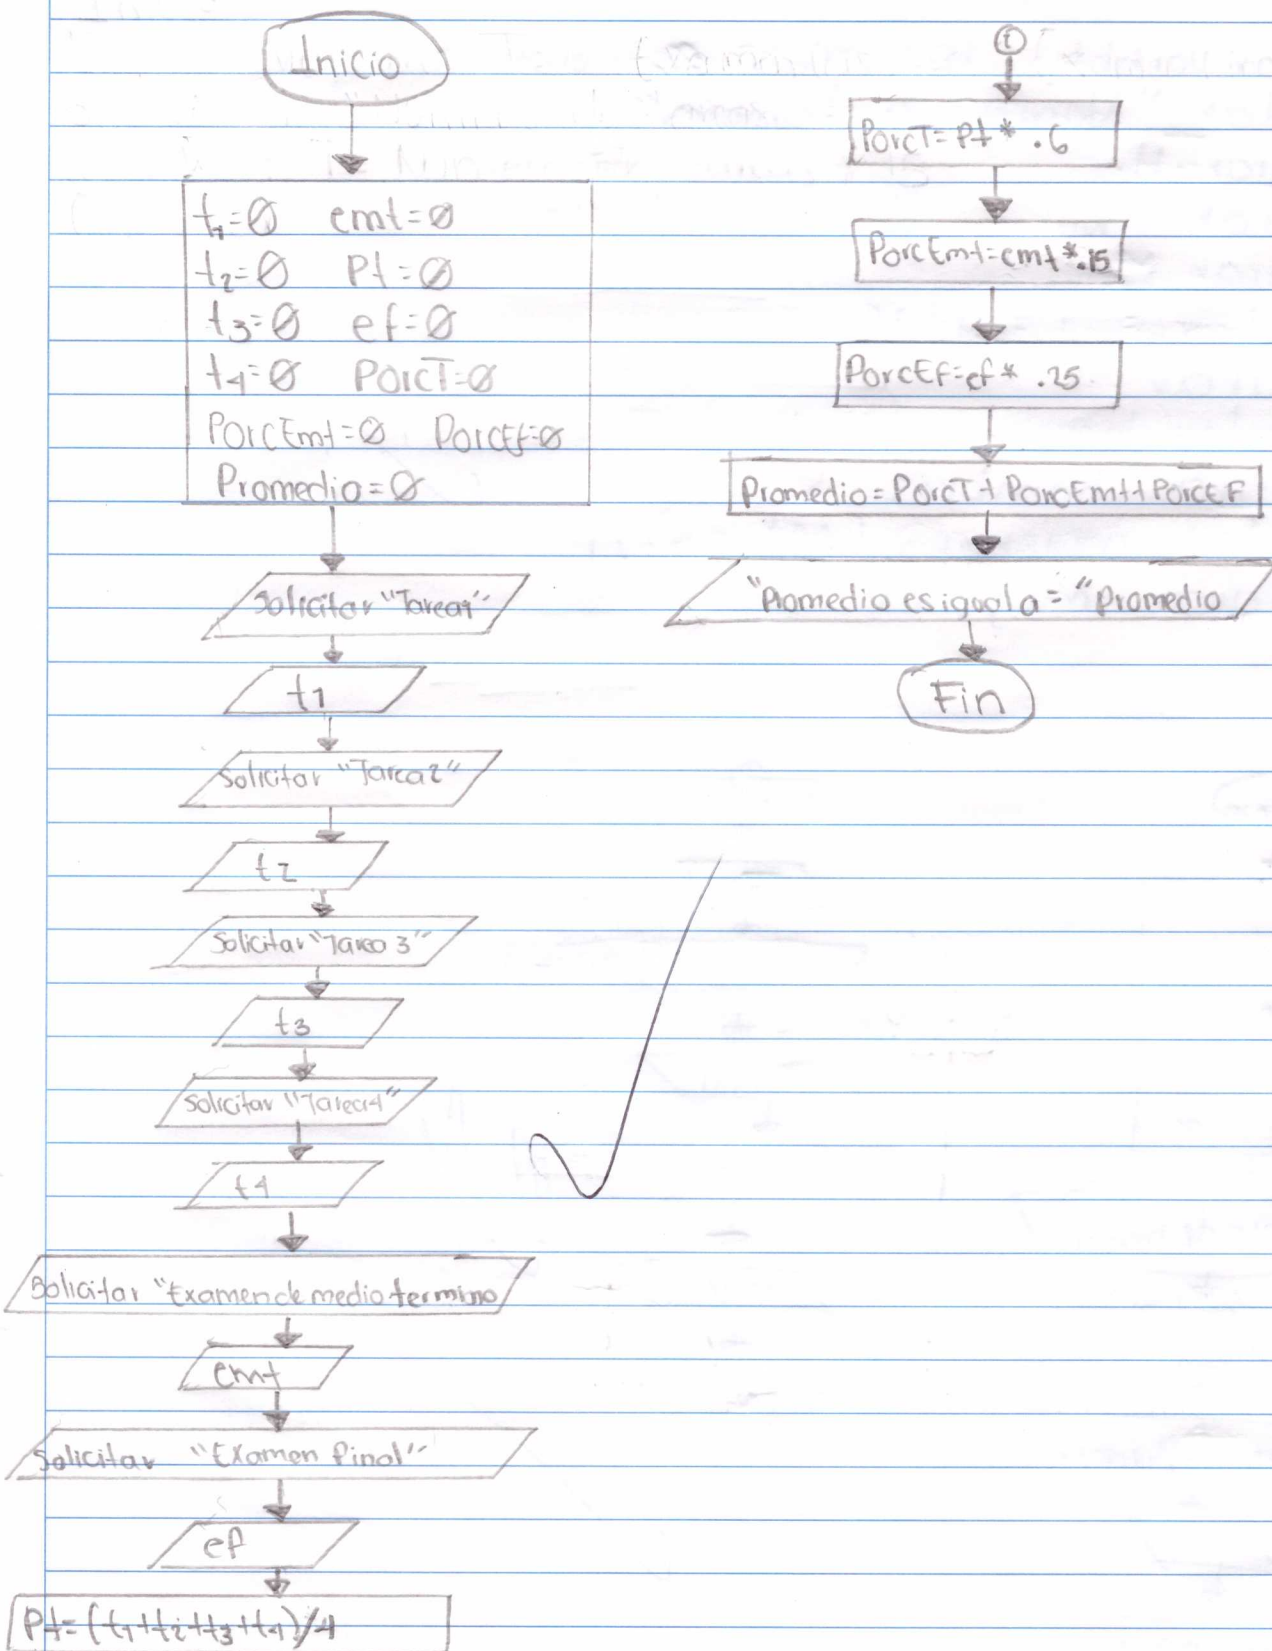 Inicio
t1=0 emt=0
t2=0 Pt=0
t3=0 ef=0
t4=0 PorcT=0
PorcEmt=0 PorcEf=0
Promedio=0
Solicitar "Tarea1"
t1
Solicitar "Tarea2"
t2
Solicitar "Tarea 3"
t3
Solicitar "Tarea4"
t4
Solicitar "Examen de medio termino
emt
Solicitar "Examen Final"
ef
Pt=(t1+t2+t3+t4)/4
1
PorcT=Pt * .6
PorcEmt=emt*.15
PorcEf=ef* .25
Promedio=PorcT+PorcEmt+PorcEF
"Promedio es igual a = "Promedio
Fin